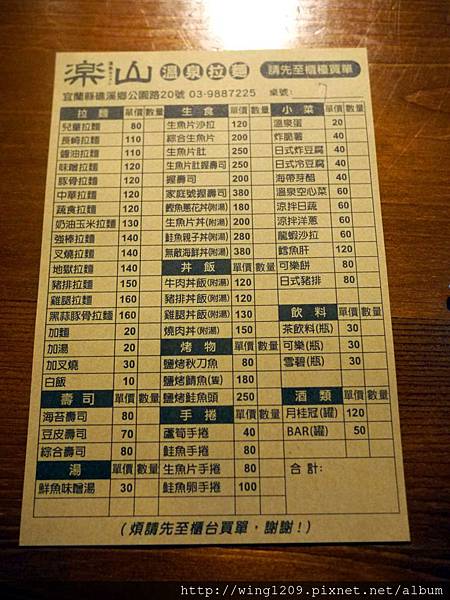 楽山 溫泉拉麵 請先至櫃檯買單
宜蘭縣礁溪鄉公園路20號 03-9887225 桌號:
拉麵 單價 數量
兒童拉麵 80
長崎拉麵 110
醬油拉麵 110
味噌拉麵 120
豚骨拉麵 120
中華拉麵 120
蔬食拉麵 120
奶油玉米拉麵 130
強棒拉麵 140
叉燒拉麵 140
地獄拉麵 140
豬排拉麵 150
雞腿拉麵 160
黑蒜豚骨拉麵 160
加麵 20
加湯 20
加叉燒 30
白飯 10
壽司 單價 數量
海苔壽司 80
豆皮壽司 70
綜合壽司 80
湯 單價 數量
鮮魚味噌湯 30
生食 單價 數量
生魚片沙拉 120
綜合生魚片 200
生魚片肚 250
生魚片肚握壽司 250
握壽司 200
家庭號握壽司 380
鰹魚蔥花丼(附湯) 180
生魚片丼(附湯) 200
鮭魚親子丼(附湯) 280
無敵海鮮丼(附湯) 380
丼飯 單價 數量
牛肉丼飯(附湯) 120
豬排丼飯(附湯) 120
雞腿丼飯(附湯) 130
燒肉丼(附湯) 150
烤物 單價 數量
鹽烤秋刀魚 80
鹽烤鯖魚(隻) 180
鹽烤鮭魚頭 250
手捲 單價 數量
蘆筍手捲 40
鮭魚手捲 80
生魚片手捲 80
鮭魚卵手捲 100
小菜 單價 數量
溫泉蛋 20
炸脆薯 40
日式炸豆腐 40
日式冷豆腐 40
海帶芽醋 40
溫泉空心菜 60
涼拌日蔬 60
涼拌洋蔥 60
龍蝦沙拉 60
鱈魚肝 120
可樂餅 80
日式豬排 80
飲料 單價 數量
茶飲料(瓶) 30
可樂(瓶) 30
雪碧(瓶) 30
酒類 單價 數量
月桂冠(罐) 120
BAR(罐) 50
合計:
(煩請先至櫃台買單,謝謝!)
http://wing1209.pixnet.net/album